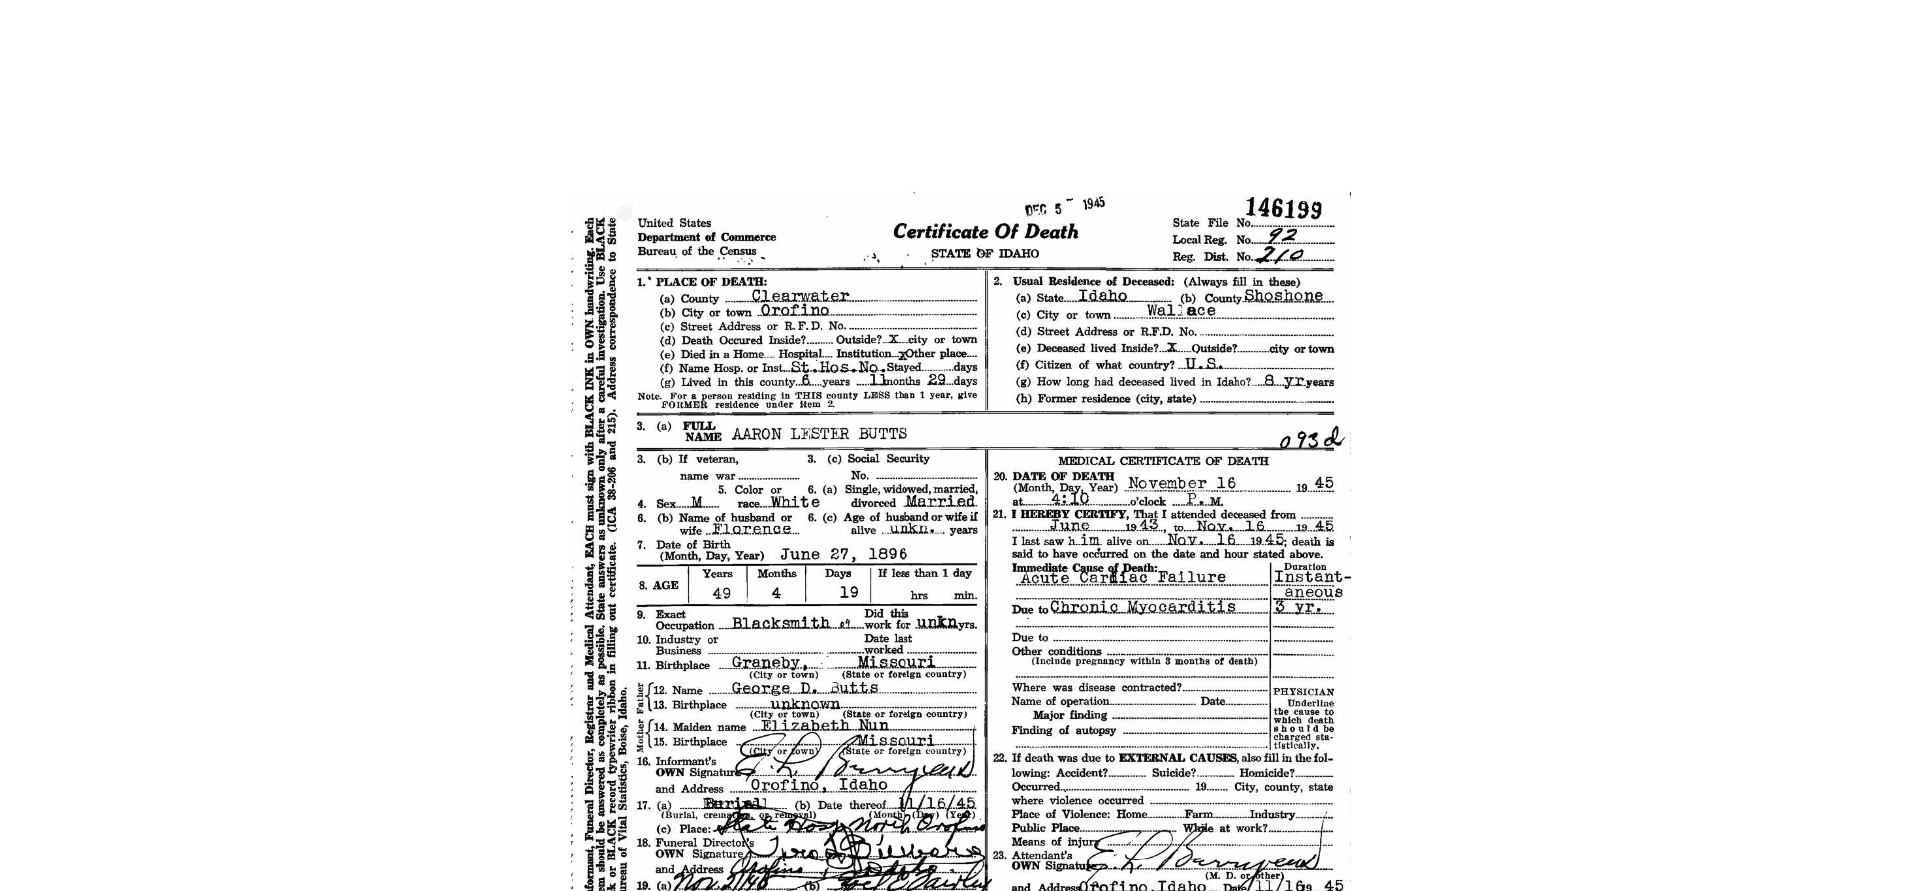 DEC 5 - 1945
146199
United States
Department of Commerce
Bureau of the Census
Certificate Of Death
STATE OF IDAHO
State File No.
Local Reg. No. 92
Reg. Dist. No. 210
1. PLACE OF DEATH:
(a) County Clearwater
(b) City or town Orofino
(c) Street Address or R.F.D. No.
(d) Death Occured Inside? Outside? X city or town
(e) Died in a Home Hospital Institution x Other place
(f) Name Hosp. or Inst. St.Hos.No. Stayed days
(g) Lived in this county 6 years 11 months 29 days
Note. For a person residing in THIS county LESS than 1 year, give
FORMER residence under item 2.
2. Usual Residence of Deceased: (Always fill in these)
(a) State Idaho (b) County Shoshone
(c) City or town Wallace
(d) Street Address or R.F.D. No.
(e) Deceased lived Inside? X Outside? city or town
(f) Citizen of what country? U.S.
(g) How long had deceased lived in Idaho? 8 yr years
(h) Former residence (city, state)
3. (a) FULL
NAME AARON LESTER BUTTS
093d
3. (b) If veteran, 3. (c) Social Security
name war No.
5. Color or 6. (a) Single, widowed, married,
4. Sex M race White divorced Married
6. (b) Name of husband or 6. (c) Age of husband or wife if
wife Florence alive unkn. years
7. Date of Birth
(Month, Day, Year) June 27, 1896
8. AGE Years Months Days If less than 1 day
49 4 19 hrs min.
9. Exact Did this
Occupation Blacksmith work for unkn yrs.
10. Industry or Date last
Business worked
11. Birthplace Graneby, Missouri
(City or town) (State or foreign country)
Father
12. Name George D. Butts
13. Birthplace unknown
(City or town) (State or foreign country)
Mother
14. Maiden name Elizabeth Nun
15. Birthplace Missouri
(City or town) (State or foreign country)
16. Informant's
OWN Signature
and Address Orofino, Idaho
17. (a) Burial (b) Date thereof 11/16/45
(Burial, cremation, or removal) (Month) (Day) (Year)
(c) Place: State Hosp North Orofino
18. Funeral Director's
OWN Signature
and Address Orofino Idaho
19. (a) (b)
MEDICAL CERTIFICATE OF DEATH
20. DATE OF DEATH
(Month, Day, Year) November 16 19 45
at 4:10 o'clock P. M.
21. I HEREBY CERTIFY, That I attended deceased from
June 19 43, to Nov. 16 19 45
I last saw h im alive on Nov. 16 19 45; death is
said to have occurred on the date and hour stated above.
Immediate Cause of Death: Duration
Acute Cardiac Failure Instant-
aneous
Due to Chronic Myocarditis 3 yr.
Due to
Other conditions
(Include pregnancy within 3 months of death)
Where was disease contracted?
Name of operation Date
Major finding
Finding of autopsy
PHYSICIAN
Underline
the cause to
which death
should be
charged sta-
tistically.
22. If death was due to EXTERNAL CAUSES, also fill in the fol-
lowing: Accident? Suicide? Homicide?
Occurred 19 City, county, state
where violence occurred
Place of Violence: Home Farm Industry
Public Place While at work?
Means of injury
23. Attendant's
OWN Signature
(M. D. or other)
and Address Orofino, Idaho Date 11/16 19 45
formant, Funeral Director, Registrar and Medical Attendant, EACH must sign with BLACK INK in OWN handwriting. Each
m should be answered as completely as possible. State answers as unknown only after a careful investigation. Use BLACK
k or BLACK record typewriter ribbon in filling out certificate. (ICA 38-206 and 215). Address correspondence to State
ureau of Vital Statistics, Boise, Idaho.